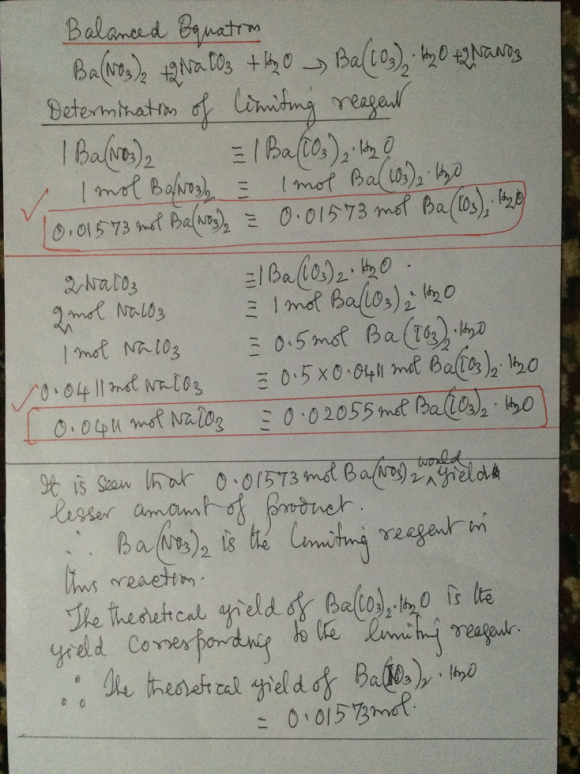 Balanced Equation
Ba(NO3)2 + 2NaIO3 + H2O → Ba(IO3)2 · H2O + 2NaNO3
Determination of limiting reagent
1 Ba(NO3)2 ≡ 1 Ba(IO3)2 · H2O
1 mol Ba(NO3)2 ≡ 1 mol Ba(IO3)2 · H2O
0.01573 mol Ba(NO3)2 ≡ 0.01573 mol Ba(IO3)2 · H2O
2 NaIO3 ≡ 1 Ba(IO3)2 · H2O
2 mol NaIO3 ≡ 1 mol Ba(IO3)2 · H2O
1 mol NaIO3 ≡ 0.5 mol Ba(IO3)2 · H2O
0.0411 mol NaIO3 ≡ 0.5 × 0.0411 mol Ba(IO3)2 · H2O
0.0411 mol NaIO3 ≡ 0.02055 mol Ba(IO3)2 · H2O
It is seen that 0.01573 mol Ba(NO3)2 would yield
lesser amount of product.
∴ Ba(NO3)2 is the limiting reagent in
this reaction.
The theoretical yield of Ba(IO3)2 · H2O is the
yield corresponding to the limiting reagent.
∴ The theoretical yield of Ba(IO3)2 · H2O
= 0.01573 mol.